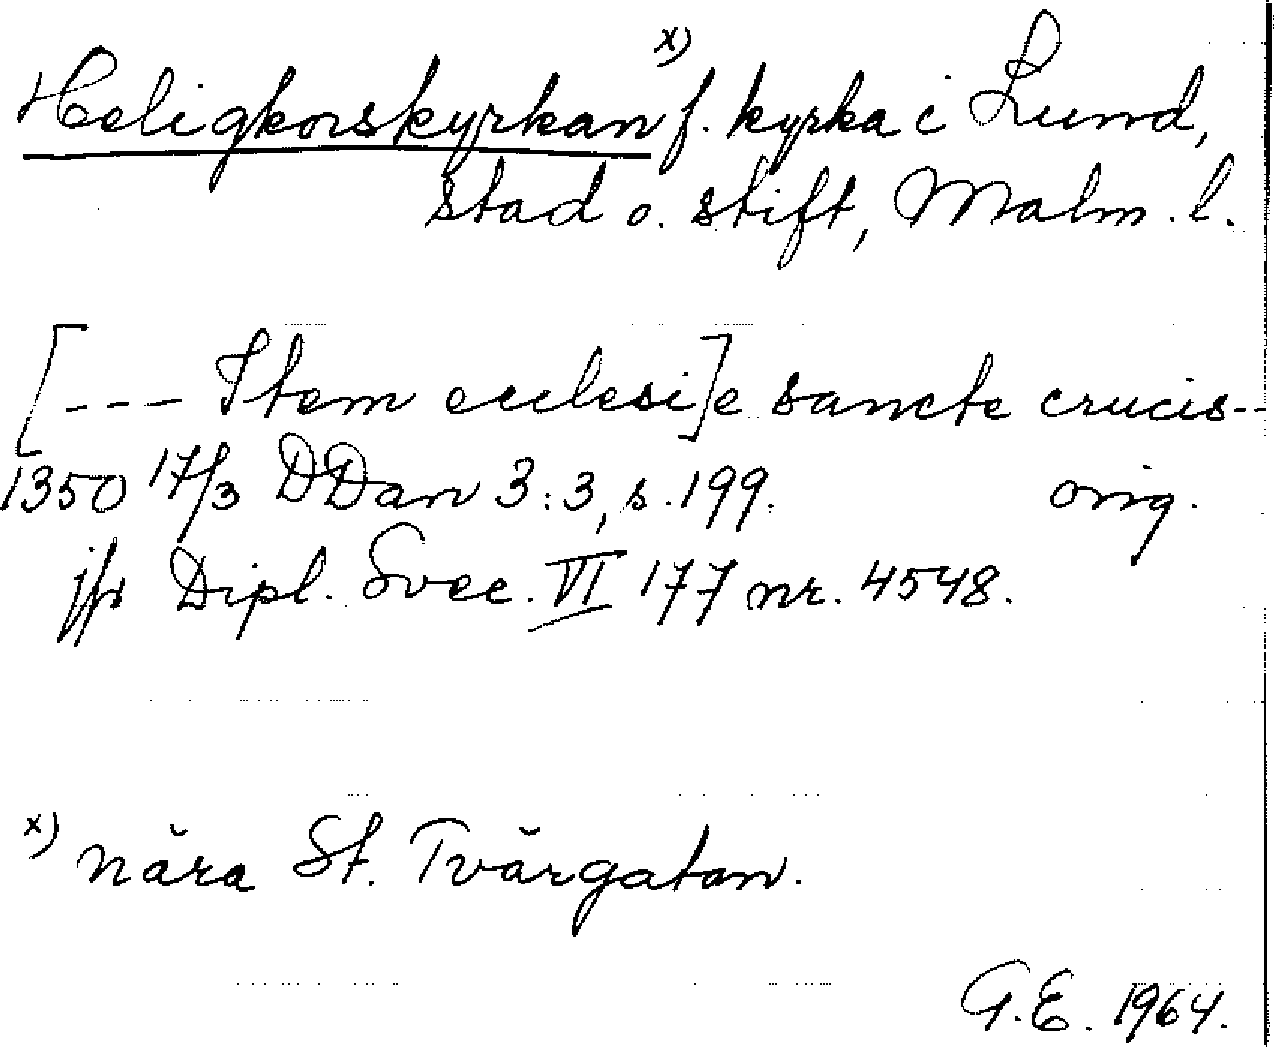 Heligkorskyrkan x) f. kyrka i Lund,
stad o. stift, Malm. l.
[--- Item ecclesi]e sancte crucis--
1350 17/3 DDan 3:3, s. 199. orig.
jfr Dipl. Svec. VI 177 nr. 4548.
x) nära St. Tvärgatan.
G.E. 1964.